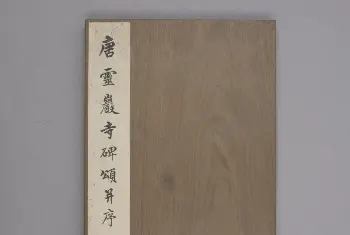 唐靈巖寺碑頌并序